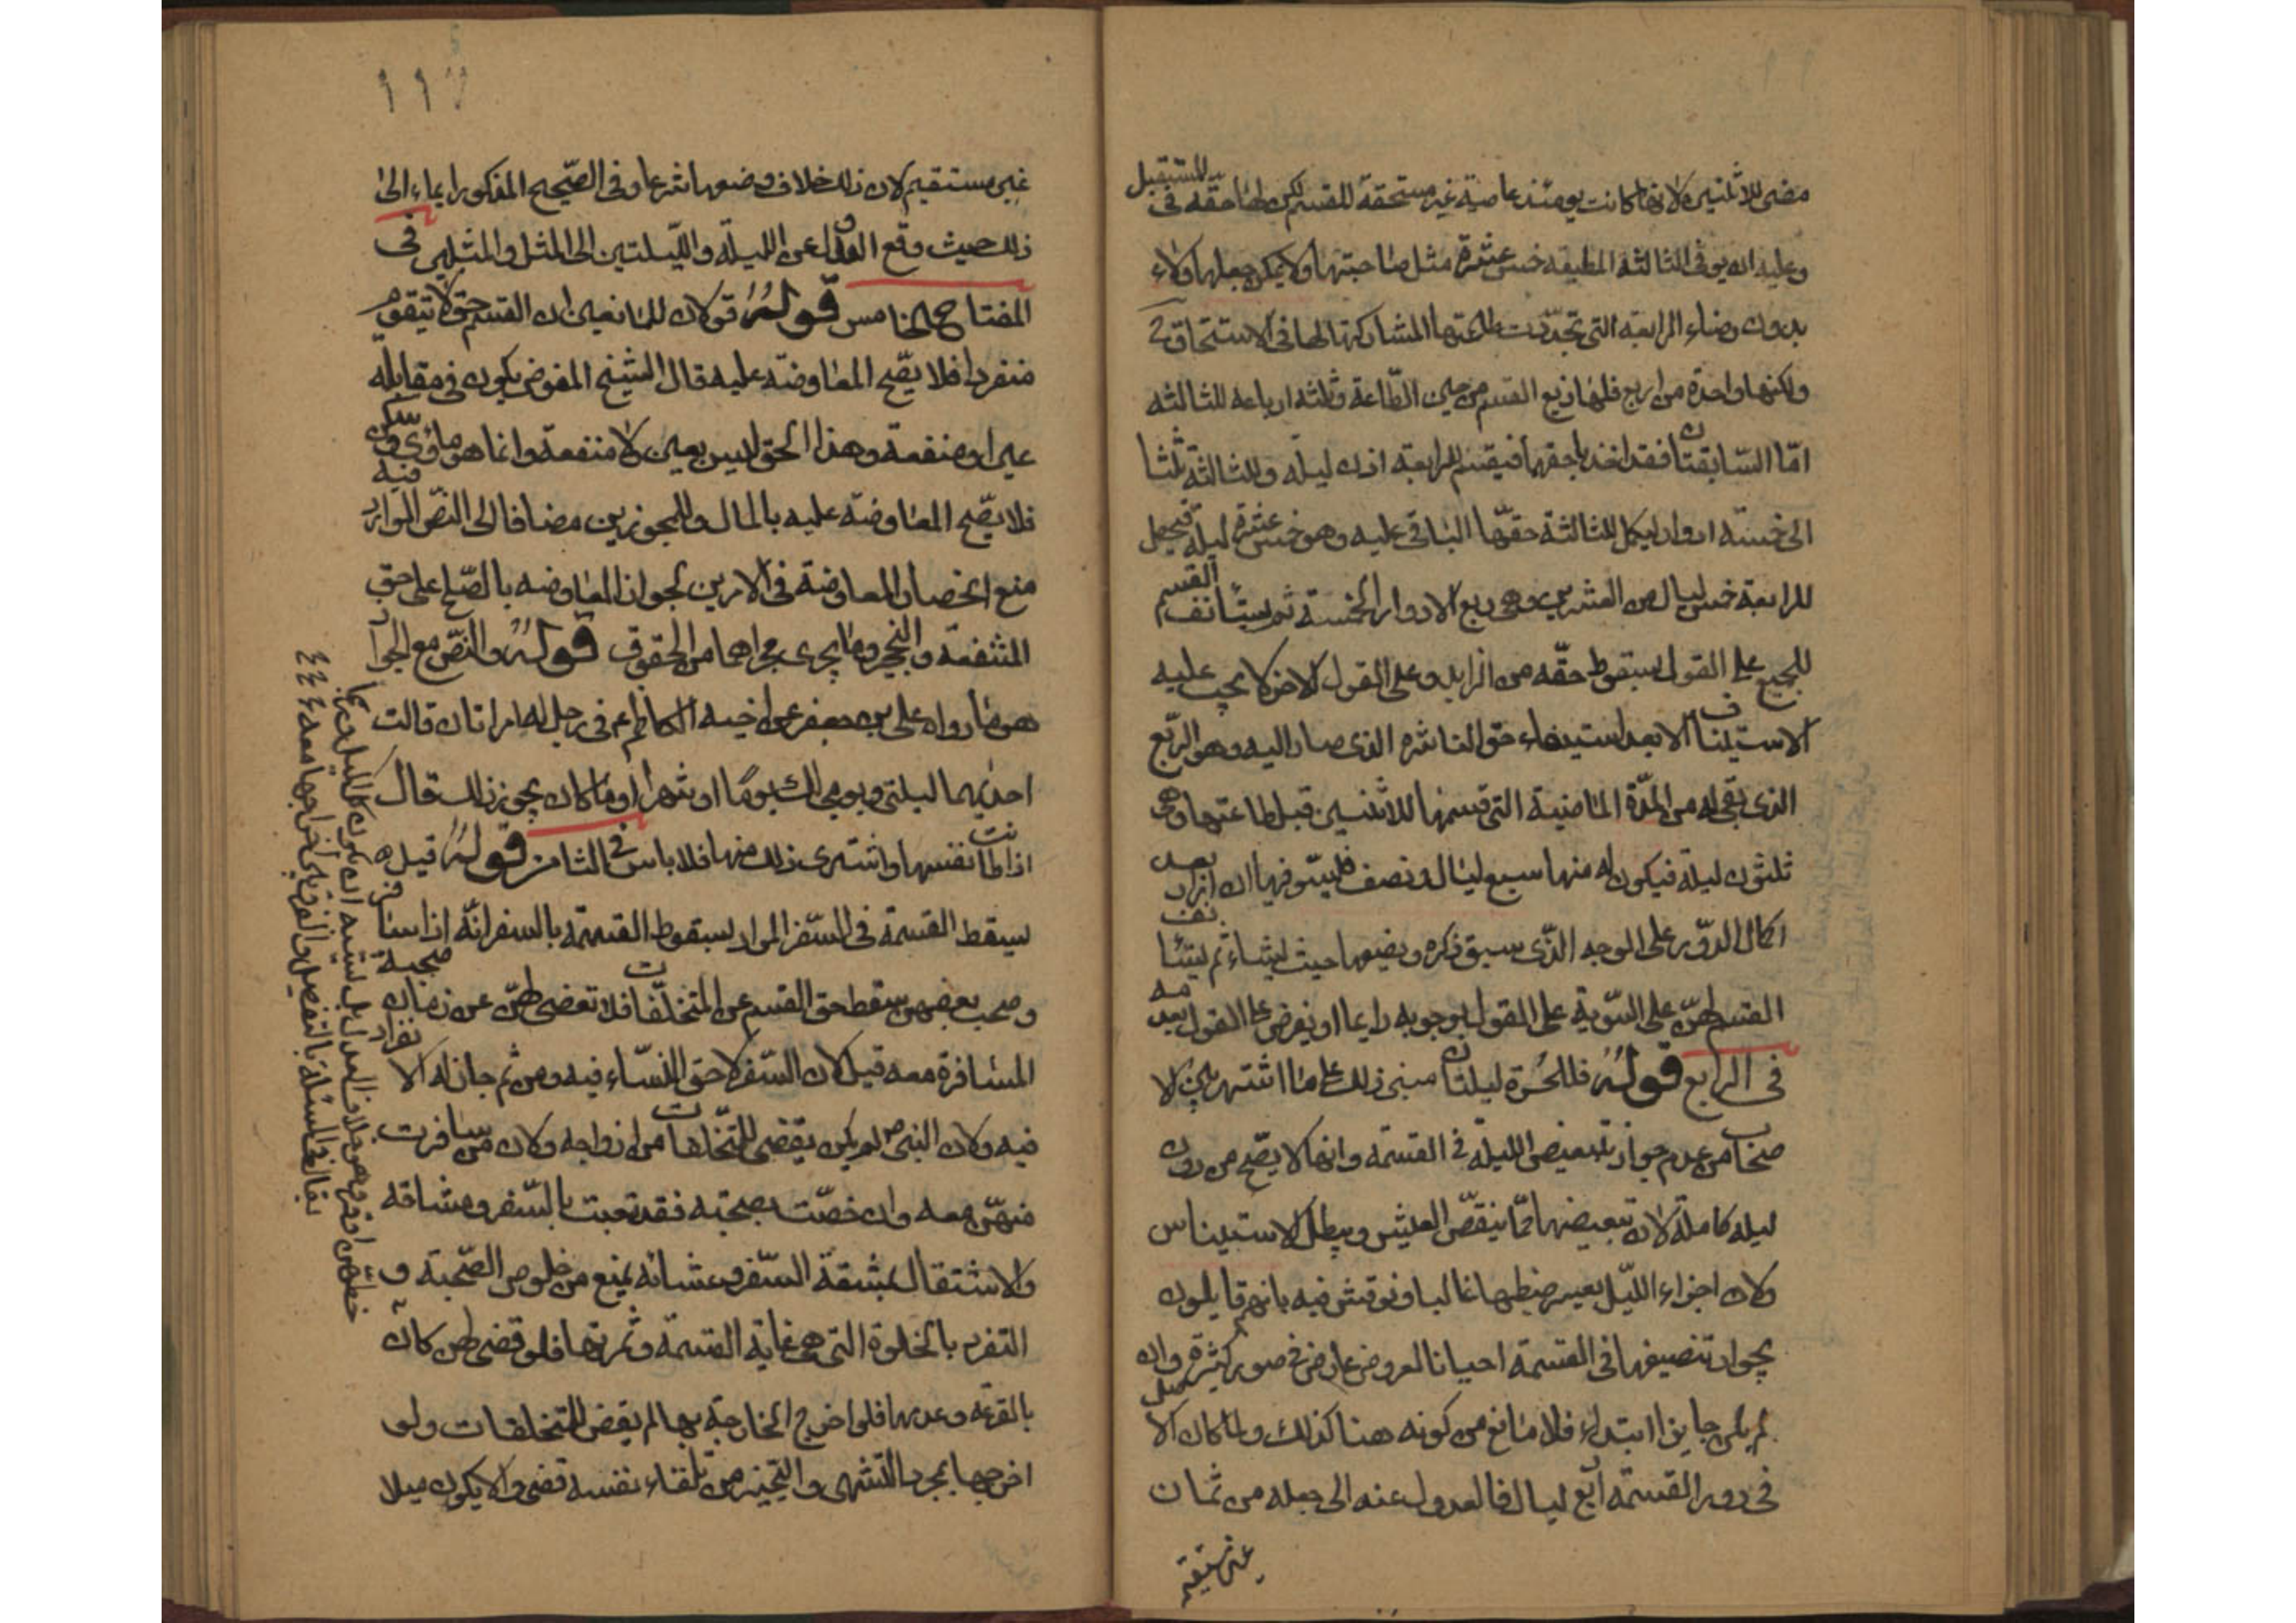 مضى للاثنتين لانها كانت يومئذ عاصية غير مستحقة للقسم لكن لها حقه فى المستقبل
وعليه ان يوفى الثالثة المطيقه خمس عشرة مثل صاحبتها ولا يمكن جعلها ولاء
بدون رضاء الرابعة التى تجددت طاعتها لمشاركتها لها فى الاستحقاق
ولكنها واحدة من اربع فلها ربع القسم من حين الطاعة وثلثه ارباعه للثالثه
امّا السّابقتان فقد اخذتا حقهما فيقسم للرابعة اذن ليله وللثالثة ثلثا
الى خمسته ادوار ليكمل للثالثة حقّها الباقى عليه وهو خمس عشرة ليلة فيحصل
للرابعة خمس ليال من العشرين وهى ربع الادوار الخمسة ثم يستانف القسم
للجميع على القول بسقوط حقّه من الزايد وعلى القول الاخر لا يجب عليه
الاستيناف الا بعد استيفاء حق الناشزه الذى صار اليه وهو الرّبع
الذى بقى له من المدّة الماضية التى قسمها للاثنتين قبل طاعتها وهى
ثلثون ليلة فيكون له منها سبع ليال ونصف فليستوفيها ان اراد بعد
اكمال الدّور على الوجه الذّى سبق ذكره ويضيعها حيث يشاء ثم يستانف
القسم لهنّ على السّوية على القول بوجوبه دايما او يعرض على القول بعدمه
فى الرابع قوله فللحرّة ليلتان مبنى ذلك على ما اشتهر بين الا
صحاب من عدم جواز تبعيض الليلة فى القسمة وانها لا يصّح من دون
ليله كاملة لان تبعيضها ممّا ينقّص العيش ويبطل الاستيناس
ولان اجزاء اللّيل يعسر ضبطها غالبا ونوقش فيه بانهم قايلون
بجواز تنصيفها فى القسمة احيانا لعروض عارض فى صور كثيرة وان
لم يكن جايزا ابتداء فلا مانع من كونه هنا كذلك ولما كان الاصل
فى دور القسمة اربع ليال فالعدول عنه الى جعله من ثمان
غير مستقيم
١١٧
غير مستقيم لان ذلك خلاف وضعها شرعا وفى الصّحيح المذكور ايماء الى
ذلك حيث وقع العدول عن الليلة واللّيلتين الى المثل والمثلين فى
المفتاح الخامس قوله قولان للمانعين ان القسم حق لا يتقوم
منفردا فلا يصّح المعاوضه عليه قال الشيخ المفوض يكون فى مقابلة
عين او منفعة وهذا الحق ليس بعين ولا منفعة وانما هو ماوى وسكن
فلا يصّح المعاوضة عليه بالمال وللمجوزين مضافا الى النصّ الوارد فيه
منع انحصار المعاوضة فى الامرين لجواز المعاوضه بالصّلح على حق
الشفعة والتحجير وما يجرى مجراهما من الحقوق قوله والنصّ مع الجواز
هو ما رواه على بن جعفر عن اخيه الكاظم ع فى رجل له امراتان قالت
احديهما ليلتى ويومى لك يومًا او شهرا او ما كان يجوز ذلك قال
اذا طابت نفسها واشترى ذلك منها فلا باس فى الثامن قوله قيل
يسقط القسمة فى السّفر المراد بسقوط القسمة بالسفر انّه اذا سافر
وصحب بعضهن سقط حق القسم عن المتخلّفات فلا تقضى لهنّ عن زمان صحبة
المسافرة معه قيل لان السّفر لا حق للنّساء فيه ومن ثم جاز له الانفراد
فيه ولان النبى ص لم يكن يقضى للمتخلّفات من ازواجه ولان من سافرت
منهّن معه وان خصّت بصحبته فقد تعبت بالسّفر ومشاقه
والاشتغال بمشقة السّفر وعشائه يمنع من خلوص الصّحبة و
التفرد بالخلوة التى هى غاية القسمة وثمرتها فلو قضى لهن كان
بالقرعه وعدمها فلو اخرج الخارجة بها لم يقض للمتخلفات ولو
اخرجها بمجرد التشهى والتحيز من تلقاء نفسه قضى والا يكون ميلا